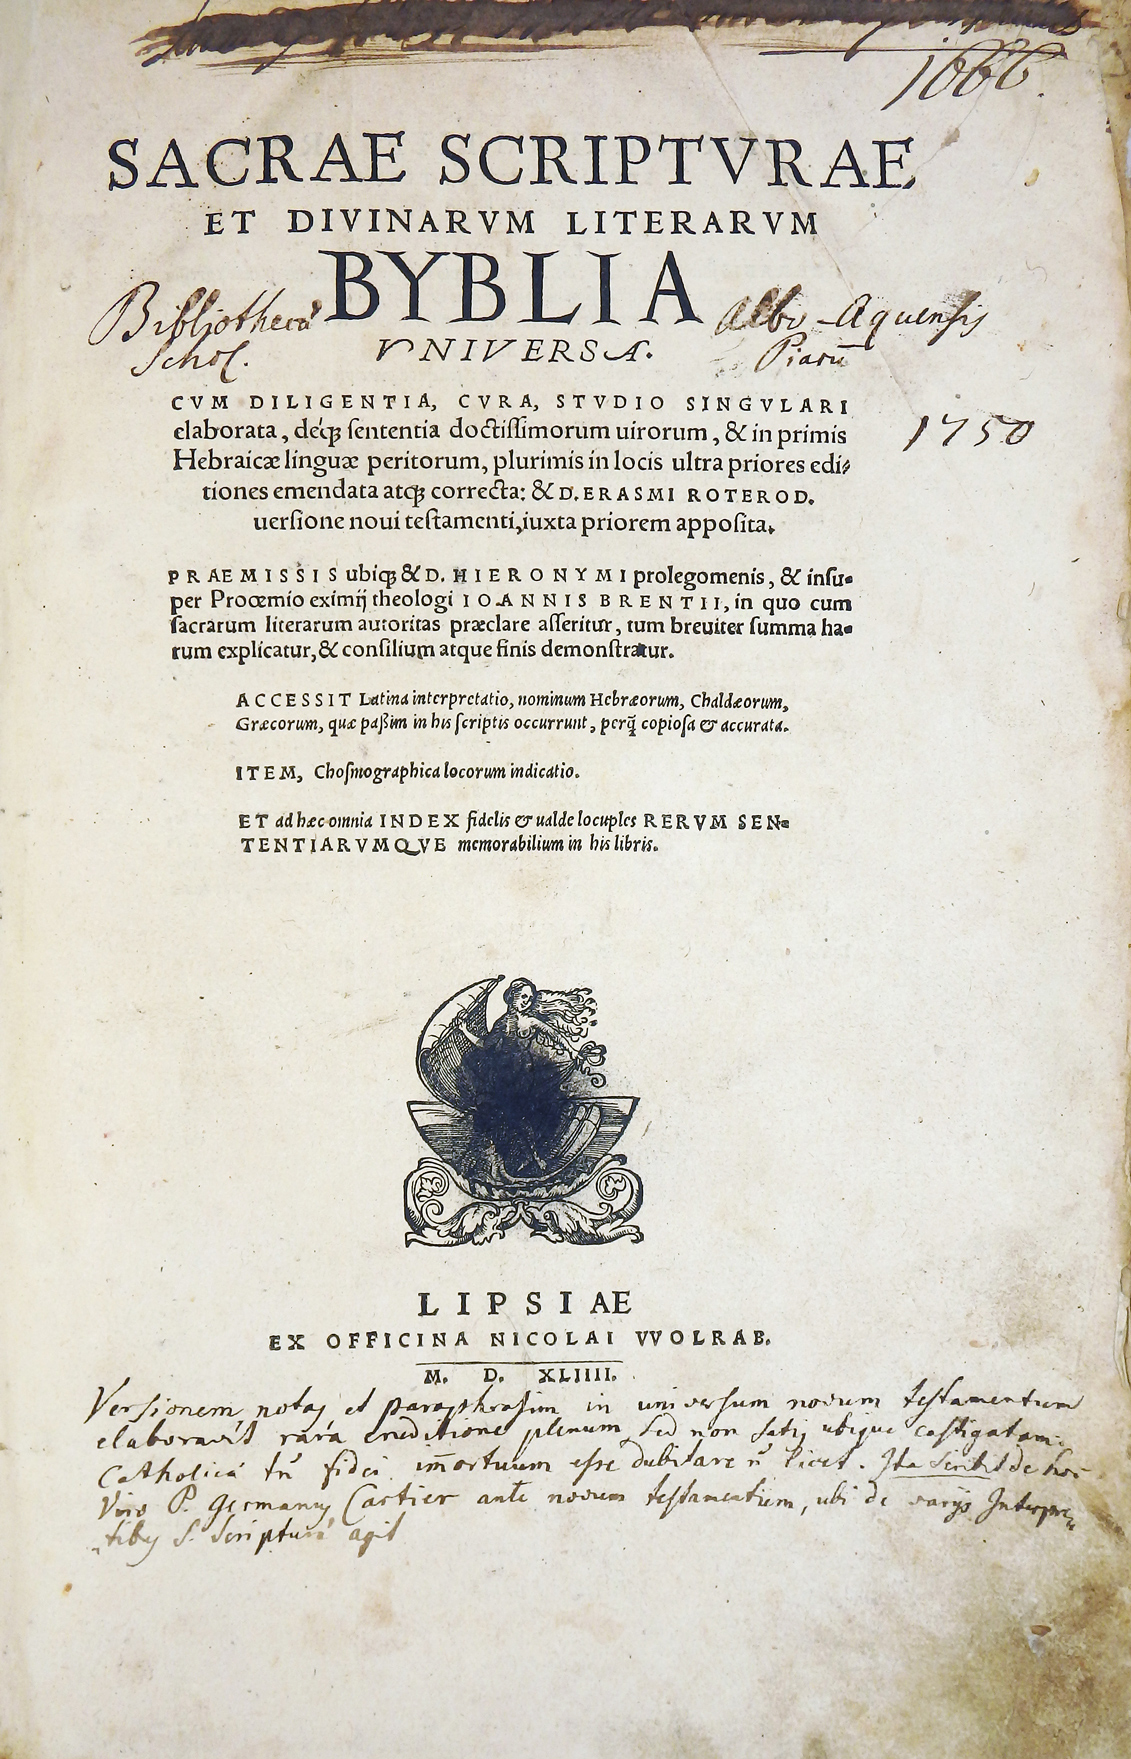 1666.
SACRAE SCRIPTVRAE
ET DIVINARVM LITERARVM
BYBLIA
Bibliothecæ Albo-Aquensis
Schol. Piarū
VNIVERSA.
1750
CVM DILIGENTIA, CVRA, STVDIO SINGVLARI
elaborata, deq́ꝫ sententia doctissimorum uirorum, & in primis
Hebraicæ linguæ peritorum, plurimis in locis ultra priores edi-
tiones emendata atqꝫ correcta: & D. ERASMI ROTEROD.
uersione noui testamenti, iuxta priorem apposita.
PRAEMISSIS ubiqꝫ & D. HIERONYMI prolegomenis, & insu-
per Procemio eximij theologi IOANNIS BRENTII, in quo cum
sacrarum literarum autoritas præclare asseritur, tum breuiter summa ha-
rum explicatur, & consilium atque finis demonstratur.
ACCESSIT Latina interpretatio, nominum Hebræorum, Chaldæorum,
Græcorum, quæ paßim in his scriptis occurrunt, perq̃ copiosa & accurata.
ITEM, Chosmographica locorum indicatio.
ET ad hæc omnia INDEX fidelis & ualde locuples RERVM SEN-
TENTIARVMQVE memorabilium in his libris.
LIPSIAE
EX OFFICINA NICOLAI VVOLRAB.
M. D. XLIIII.
Versionem, notas et paraphrasim in universum novum testamentum
elaboravit rara eruditione plenum, sed non satis ubique castigatam
Catholicâ tn̄ fidei im̄ortuum esse dubitare n̄ licet. Ita scribit de hoc
Viro P. Germanus Cartier ante novum testamentum, ubi de varijs Interpre-
tibus S. Scripturæ agit